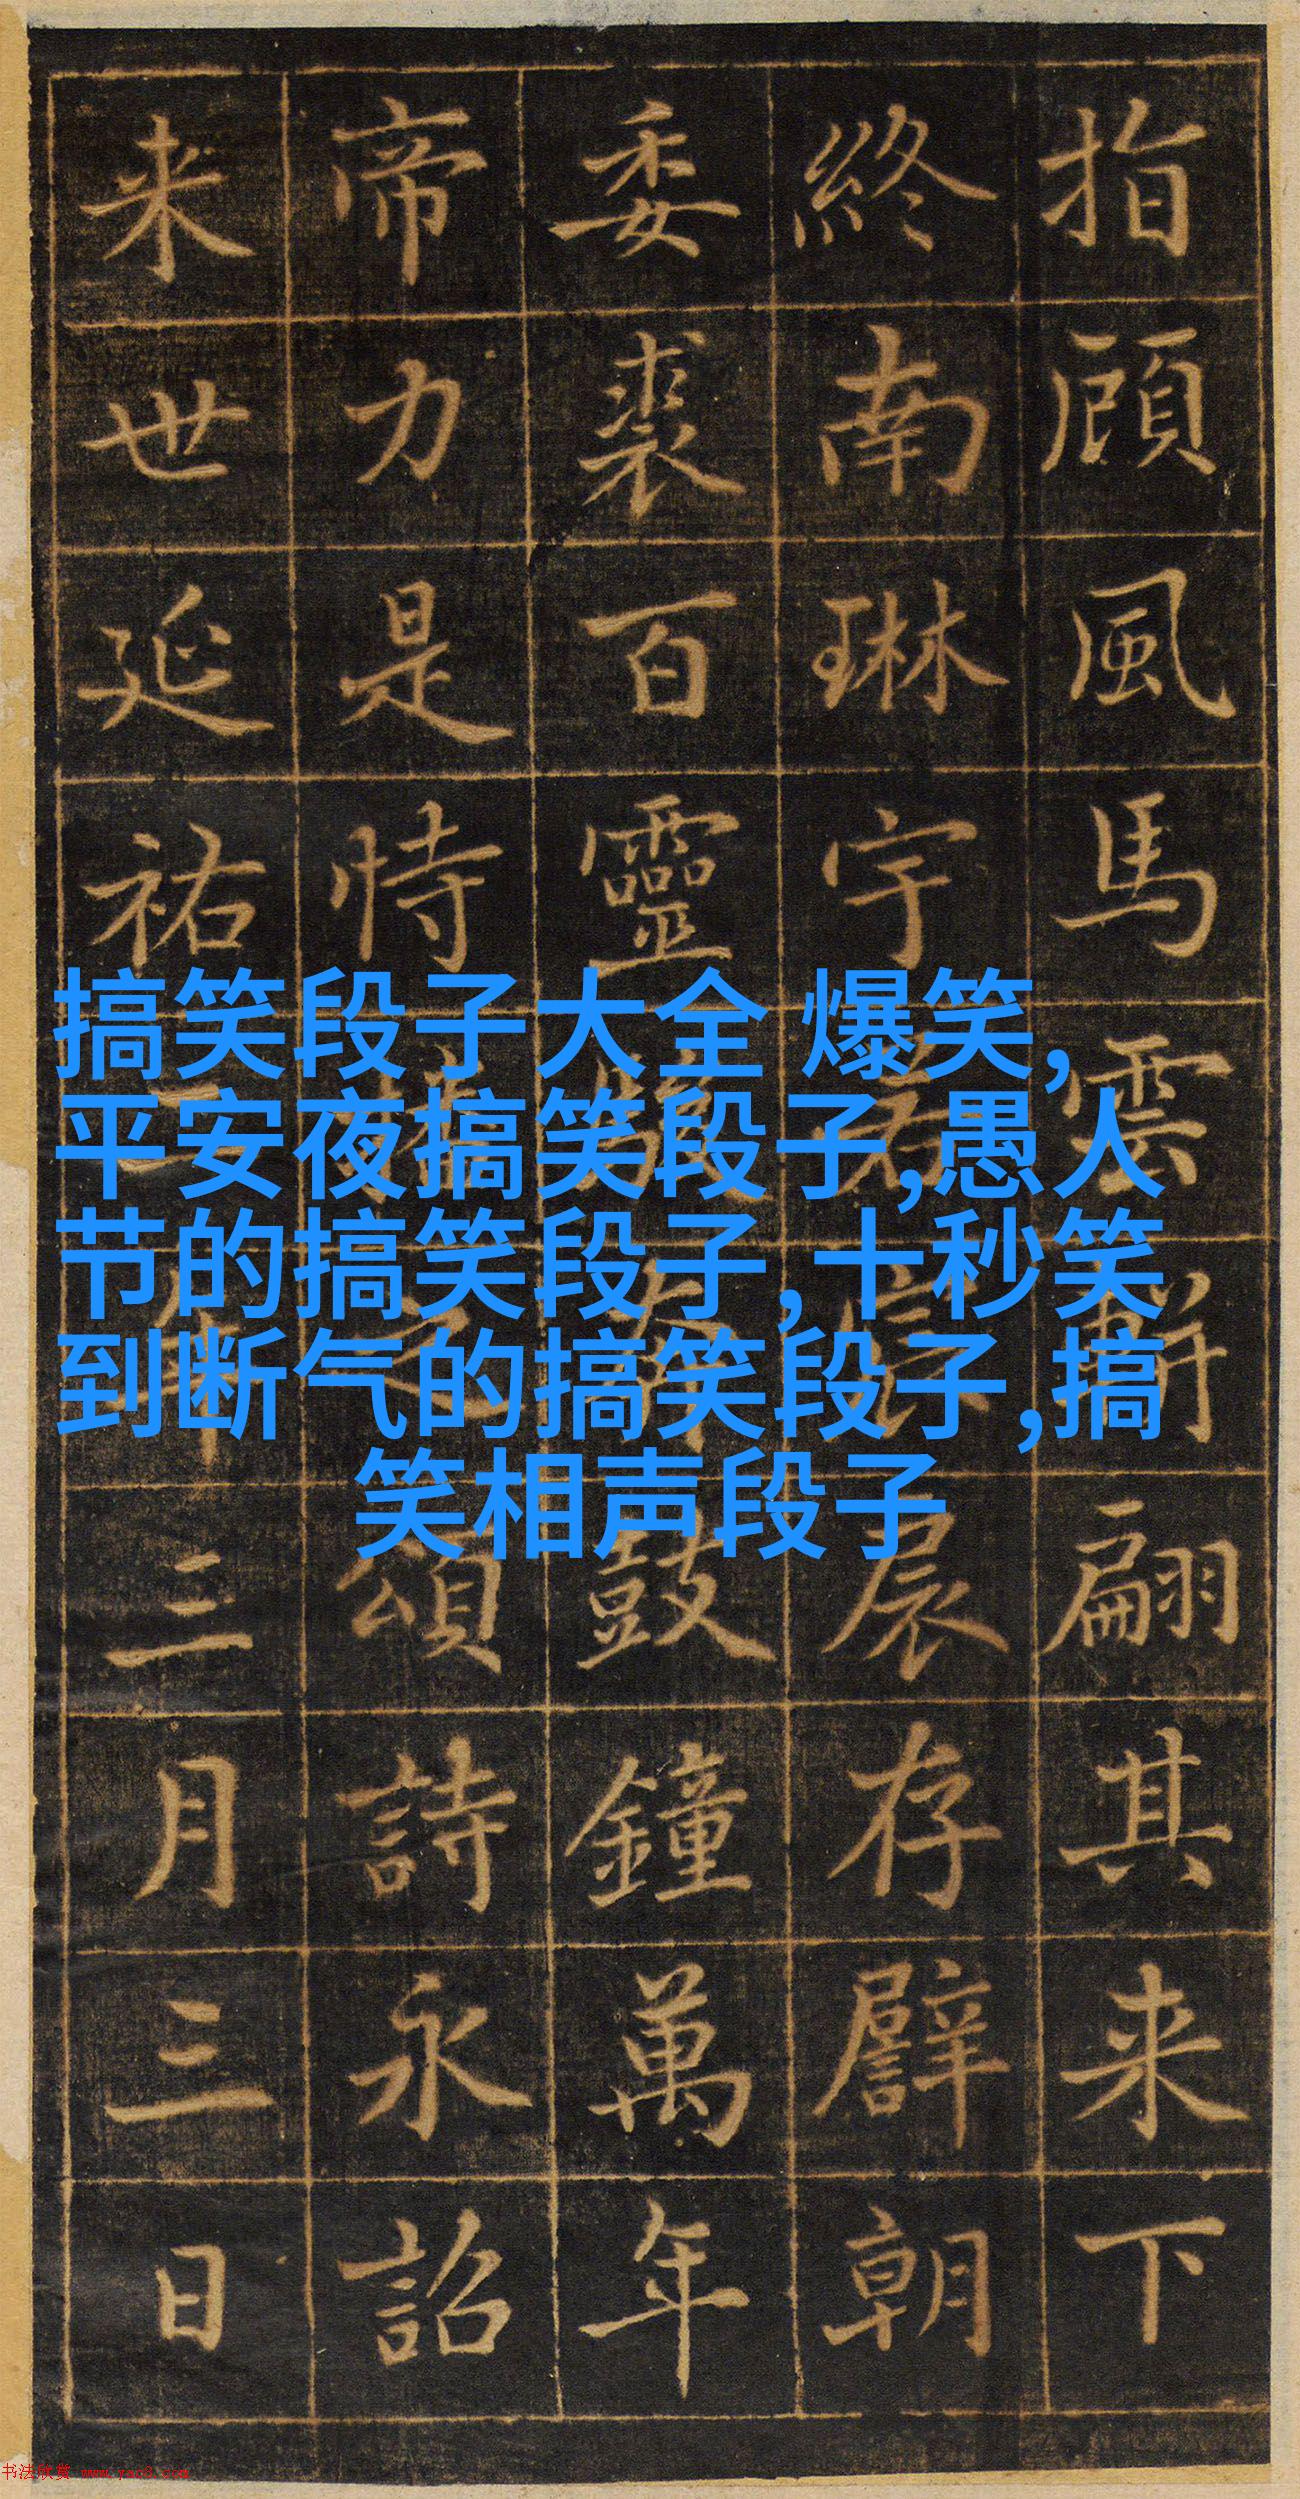 指顧風馬雲翩其来下
終南琳宇存譬朝
委裘百靈鼓鐘萬年
帝力是恃頌詩永詔
来世延祐年三月三日
搞笑段子大全 爆笑,
平安夜搞笑段子,愚人
节的搞笑段子,十秒笑
到断气的搞笑段子,搞
笑相声段子
书法欣赏 www.yac8.com